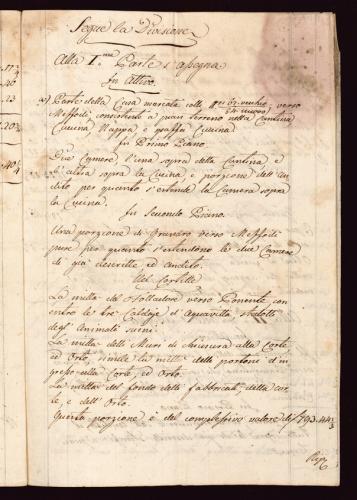 Segue la Divisione
Alla I.ma Parte s'assegna
In Attivo
Parte della Casa marcata colli N.ri 67 vecchio, verso
64 nuovo
Mezzodì, consistente a pian Terreno nella Cantina
Cucina Nappa, e Cucina
In Primo Piano
Due Camere l'una sopra della Cantina, e
l'altra sopra la Cucina, e porzione dell'An
dito per quanto s'estende la Camera sopra
la Cucina.
In Secondo Piano.
Una porzione di Granaro verso Mezzodì
pure per quanto s'estendono le due Camere
di già descritte ed andito.
Nel Cortile
La mittà del verso Ponente con
entro le tre d'Aquavitta
degl'Animali suini.
La mittà delli Muri di alla Corte
ed Orto, simile la mittà della portone d'in
gresso alla Corte, ed Orto.
La mittà del fondo delle fabbricate, della cor
te, e dell'Orto.
Questa porzione è del complessivo valore di